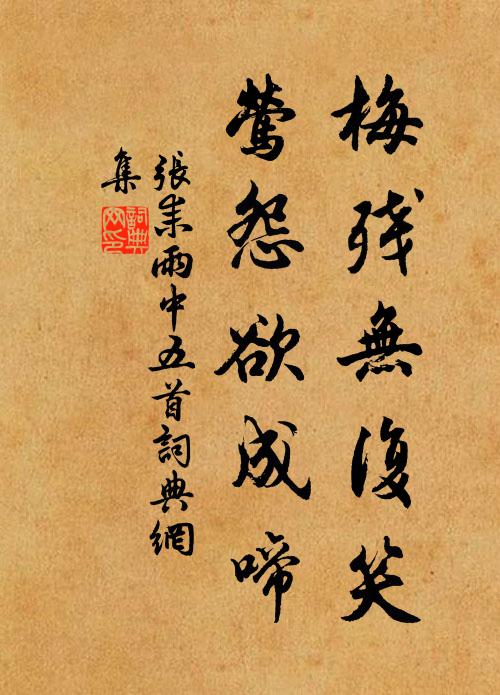 梅残無復笑
鶯怨欲成啼
張耒雨中五首詞典網
集
詞典
网印